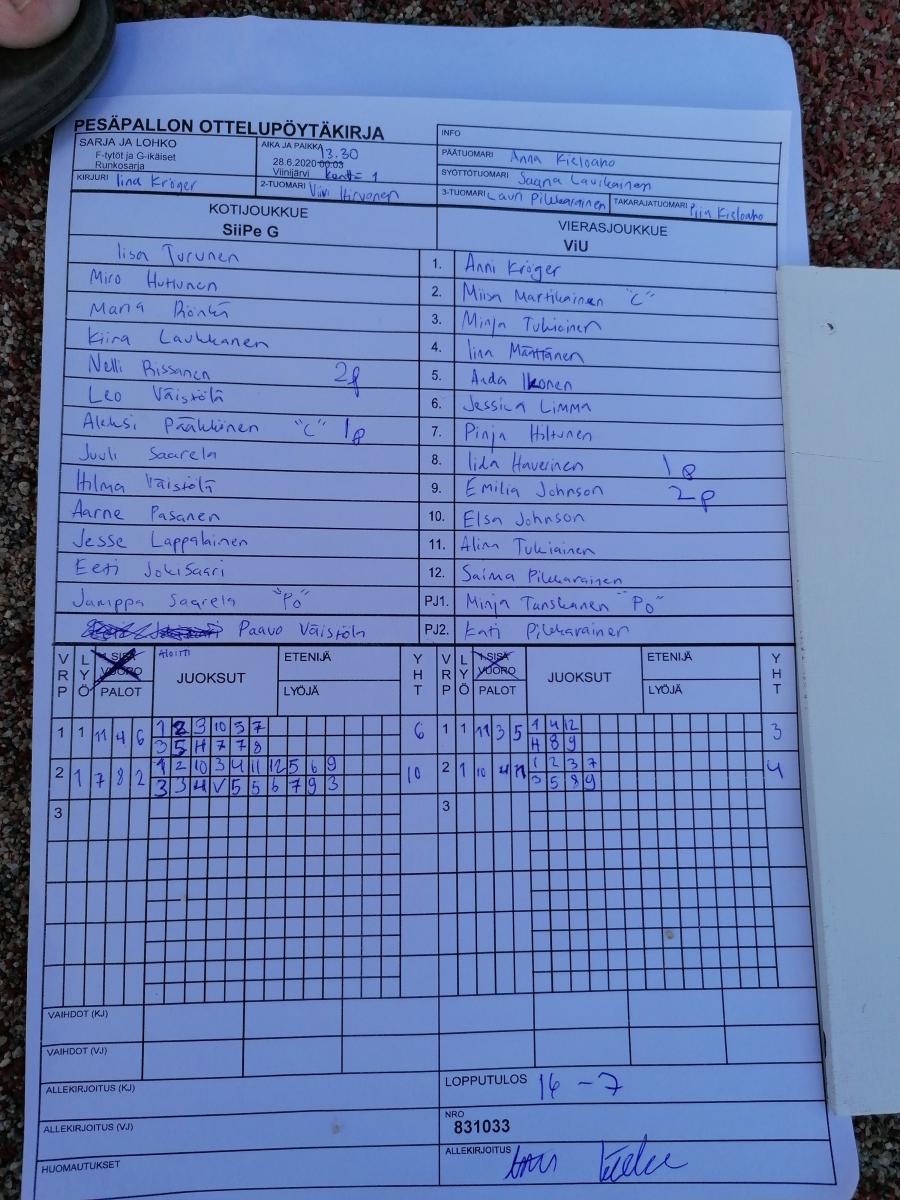 PESÄPALLON OTTELUPÖYTÄKIRJA
SARJA JA LOHKO
F-tytöt ja G-ikäiset
Runkosarja
AIKA JA PAIKKA 13.30
28.6.2020 00:03
Viinijärvi kenttä 1
INFO
PÄÄTUOMARI Anna Kieloaho
SYÖTTÖTUOMARI Saana Laukkainen
KIRJURI Iina Kröger
2-TUOMARI Viivi Hirvonen
3-TUOMARI Lauri Pikkarainen
TAKARAJATUOMARI Piia Kieloaho
KOTIJOUKKUE
SiiPe G
VIERASJOUKKUE
ViU
Iisa Turunen 1. Anni Kröger
Miro Huttunen 2. Miisa Martikainen "C"
Maria Rönkä 3. Minja Tukiainen
Kiira Laukkanen 4. Iina Määttänen
Nelli Rissanen 2p 5. Aida Ikonen
Leo Väistölä 6. Jessica Limma
Aleksi Pääkkönen "C" 1p 7. Pinja Hiltunen
Juuli Saarela 8. Iida Haverinen 1p
Hilma Väistölä 9. Emilia Johnson 2p
Aarne Pasanen 10. Elsa Johnson
Jesse Lappalainen 11. Alina Tukiainen
Eeti Jokisaari 12. Saima Pikkarainen
Jamppa Saarela "PJ1. Minja Tanskanen "PO"
Paavo Väistölä PJ2. Kati Pikkarainen
VRP LYÖ 1.SISÄ VUORO PALOT ALOITTI JUOKSUT ETENIJÄ LYÖJÄ YHT VRP LYÖ 1.SISÄ VUORO PALOT JUOKSUT ETENIJÄ LYÖJÄ YHT
1 1 11 4 6 1 2 3 10 5 7 6 1 1 11 3 5 1 4 12 3
3 5 H 7 7 8 H 8 9
2 1 7 8 2 1 2 10 3 4 11 12 5 6 9 10 2 1 10 4 1 2 3 7 4
3 3 4 V 5 5 6 7 9 3 3 5 8 9
3 3
VAIHDOT (KJ)
VAIHDOT (VJ)
ALLEKIRJOITUS (KJ)
LOPPUTULOS 16 - 7
ALLEKIRJOITUS (VJ)
NRO
831033
HUOMAUTUKSET
ALLEKIRJOITUS